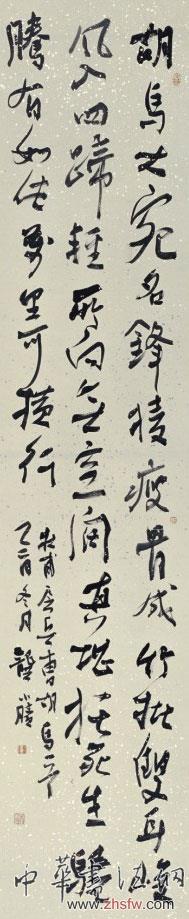 胡馬大宛名鋒稜瘦骨成竹批雙耳峻
風入四蹄輕所向無空闊真堪托死生驍
騰有如此萬里可橫行
杜甫房兵曹胡馬
乙酉冬月
中華書法網
www.zhsfw.com